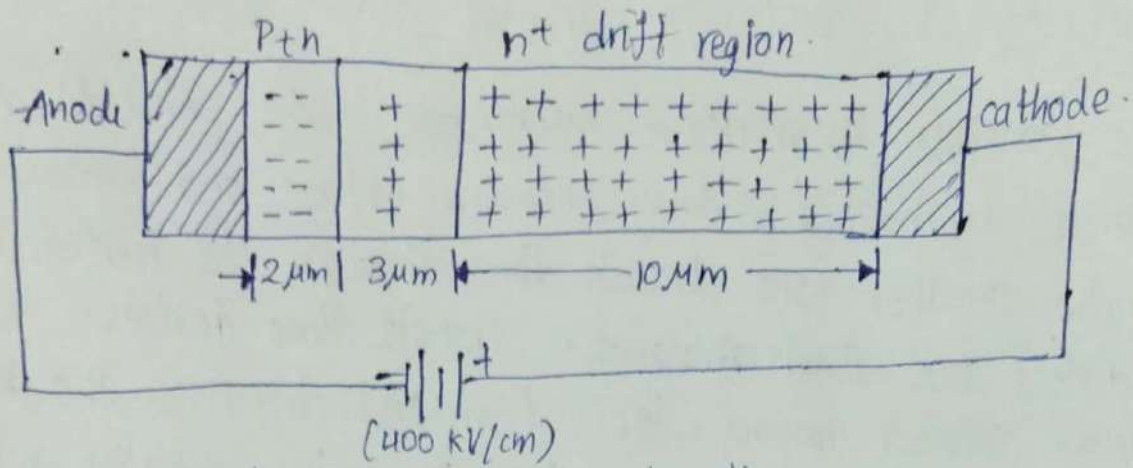 P+n n+ drift region.
Anode
cathode.
2μm 3μm 10μm
+
(400 kV/cm)